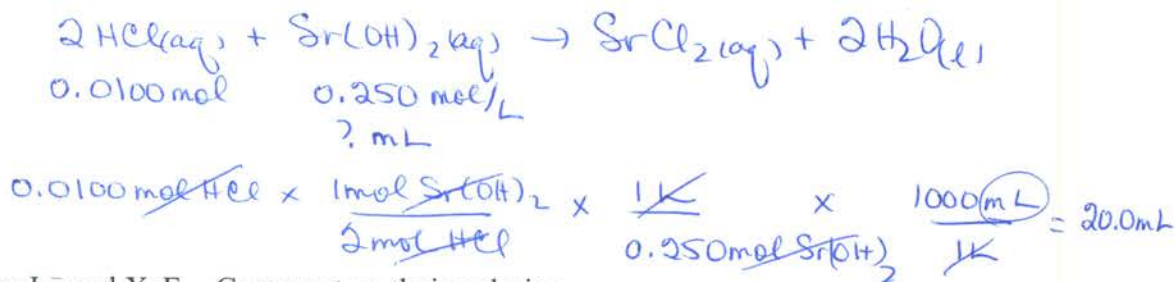 2 HCl(aq) + Sr(OH)2(aq) → SrCl2(aq) + 2H2O(l)
0.0100mol 0.250 mol/L
? mL
0.0100 mol HCl × 1mol Sr(OH)2 / 2mol HCl × 1L / 0.250mol Sr(OH)2 × 1000 mL / 1L = 20.0mL